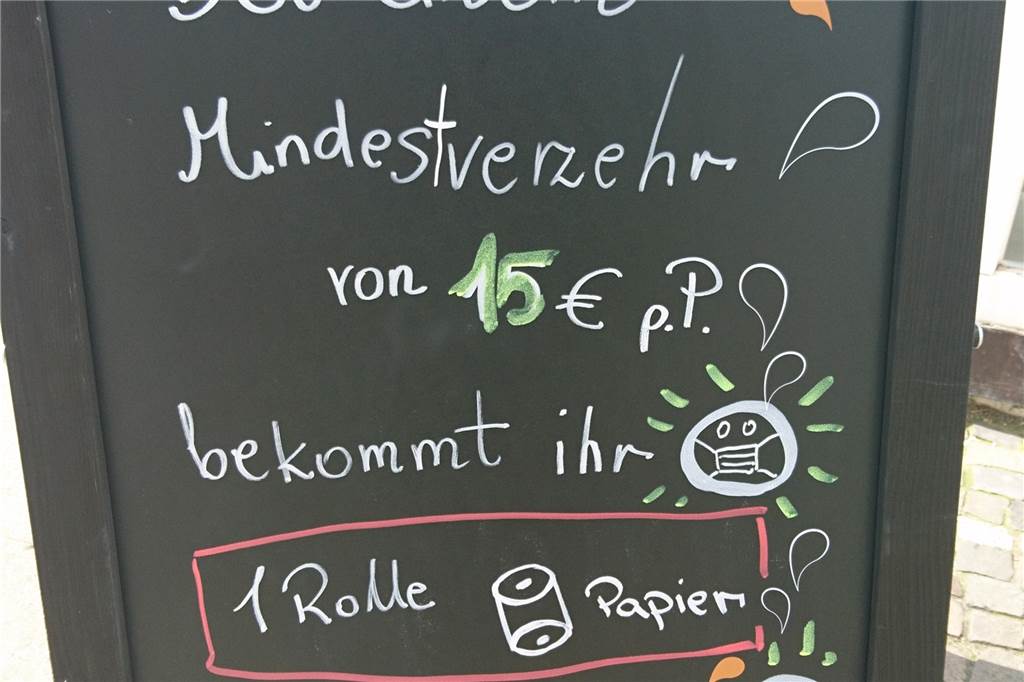 Bei einem
Mindestverzehr
von 15 € p.P.
bekommt ihr
1 Rolle Papier